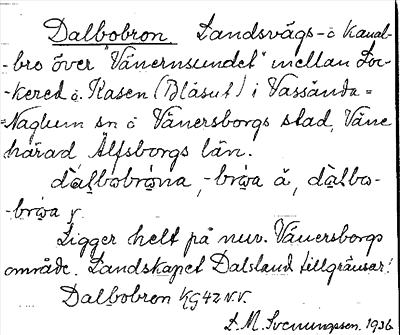 Dalbobron. Landsvägs- o Kanal-
-bro över "Vänernsundet" mellan Loc-
-kered o. Kasen (Blåsut) i Vassända=
=Naglum sn o Vänersborgs stad, Väne
härad, Älfsborgs län.
Ligger helt på nuv. Vänersborgs
område. Landskapet Dalsland tillgränsar!
Dalbobron KG42 N.V.
L.M. Svenungsson. 1936